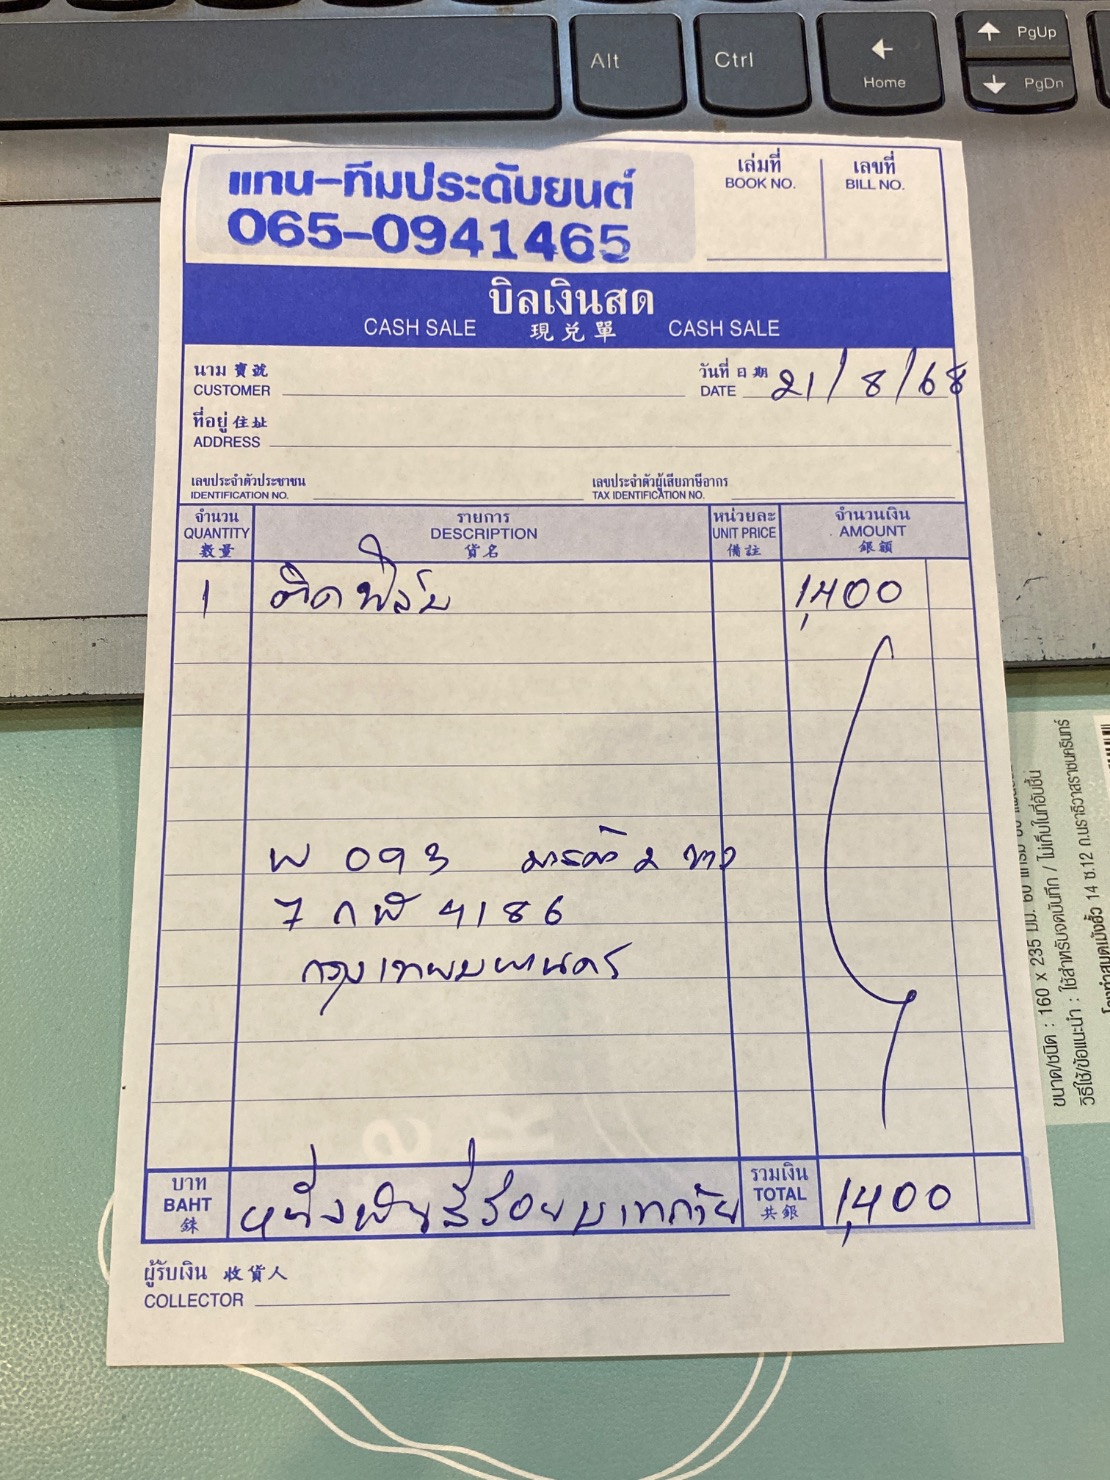 Alt
Ctrl
Home
PgUp
PgDn
แทน-ทีมประดับยนต์
065-0941465
เล่มที่
BOOK NO.
เลขที่
BILL NO.
บิลเงินสด
CASH SALE 現兑單 CASH SALE
นาม 寶號
CUSTOMER
วันที่ 日期
DATE 21/8/68
ที่อยู่ 住址
ADDRESS
เลขประจำตัวประชาชน
IDENTIFICATION NO.
เลขประจำตัวผู้เสียภาษีอากร
TAX IDENTIFICATION NO.
จำนวน
QUANTITY
數量
รายการ
DESCRIPTION
貨名
หน่วยละ
UNIT PRICE
備註
จำนวนเงิน
AMOUNT
銀額
1 ติดฟิล์ม 1,400
W 093 มาสด้า 2 ขาว
7 กฬ 4186
กรุงเทพมหานคร
บาท
BAHT
銖
หนึ่งพันสี่ร้อยบาทถ้วน
รวมเงิน
TOTAL
共銀
1,400
ผู้รับเงิน 收貨人
COLLECTOR
ขนาด/ชนิด : 160 x 235 มม. 60 แกรม
วิธีใช้/ข้อแนะนำ : ใช้สำหรับจดบันทึก / ไม่เก็บในที่อับชื้น
14 ซ.12 ถ.นราธิวาสราชนครินทร์